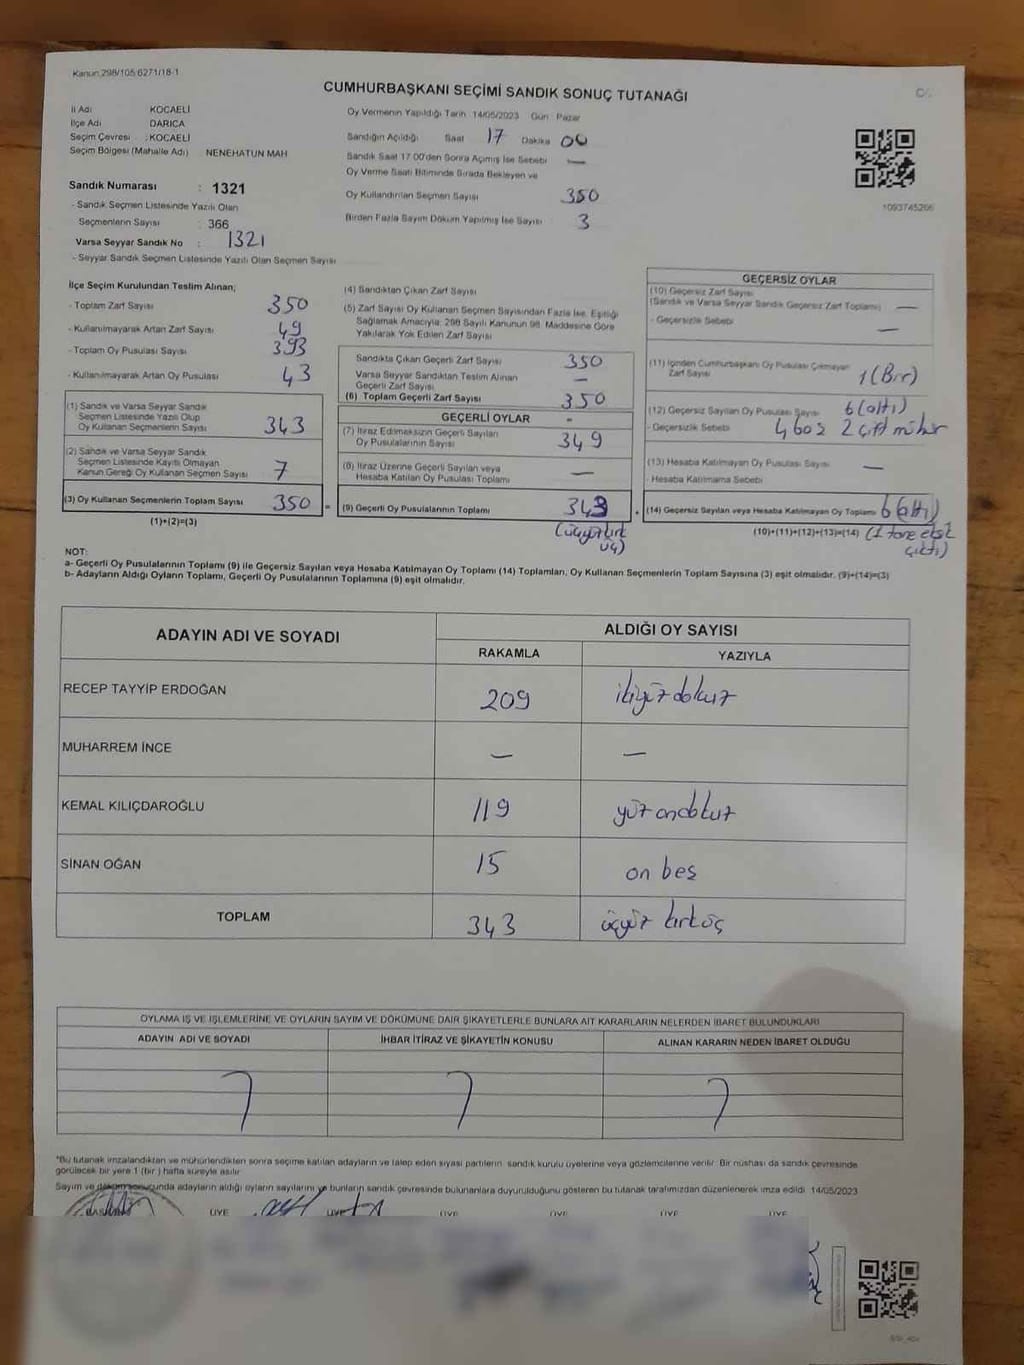 Kanun:298/105 6271/18-1
CUMHURBAŞKANI SEÇİMİ SANDIK SONUÇ TUTANAĞI
İl Adı KOCAELİ
İlçe Adı DARICA
Seçim Çevresi : KOCAELİ
Seçim Bölgesi (Mahalle Adı) NENEHATUN MAH
Sandık Numarası : 1321
- Sandık Seçmen Listesinde Yazılı Olan
Seçmenlerin Sayısı : 366
Varsa Seyyar Sandık No : 1321
- Seyyar Sandık Seçmen Listesinde Yazılı Olan Seçmen Sayısı
Oy Vermenin Yapıldığı Tarih 14/05/2023 Gün Pazar
Sandığın Açıldığı Saat 17 Dakika 00
Sandık Saat 17.00'den Sonra Açılmış İse Sebebi —
Oy Verme Saati Bitiminde Sırada Bekleyen ve
Oy Kullandırılan Seçmen Sayısı 350
Birden Fazla Sayım Döküm Yapılmış İse Sayısı 3
1093745206
İlçe Seçim Kurulundan Teslim Alınan;
- Toplam Zarf Sayısı 350
- Kullanılmayarak Artan Zarf Sayısı 49
- Toplam Oy Pusulası Sayısı 393
- Kullanılmayarak Artan Oy Pusulası 43
(1) Sandık ve Varsa Seyyar Sandık
Seçmen Listesinde Yazılı Olup
Oy Kullanan Seçmenlerin Sayısı 343
(2) Sandık ve Varsa Seyyar Sandık
Seçmen Listesinde Kayıtlı Olmayan
Kanun Gereği Oy Kullanan Seçmen Sayısı 7
(3) Oy Kullanan Seçmenlerin Toplam Sayısı 350
(1)+(2)=(3)
(4) Sandıktan Çıkan Zarf Sayısı
(5) Zarf Sayısı Oy Kullanan Seçmen Sayısından Fazla İse, Eşitliği
Sağlamak Amacıyla; 298 Sayılı Kanunun 98. Maddesine Göre
Yakılarak Yok Edilen Zarf Sayısı
Sandıkta Çıkan Geçerli Zarf Sayısı 350
Varsa Seyyar Sandıktan Teslim Alınan
Geçerli Zarf Sayısı —
(6) Toplam Geçerli Zarf Sayısı 350
GEÇERLİ OYLAR
(7) İtiraz Edilmeksizin Geçerli Sayılan
Oy Pusulalarının Sayısı 349
(8) İtiraz Üzerine Geçerli Sayılan veya
Hesaba Katılan Oy Pusulası Toplamı —
(9) Geçerli Oy Pusulalarının Toplamı 343
(üçyüzkırk
üç)
GEÇERSİZ OYLAR
(10) Geçersiz Zarf Sayısı
(Sandık ve Varsa Seyyar Sandık Geçersiz Zarf Toplamı) —
- Geçersizlik Sebebi —
(11) İçinden Cumhurbaşkanı Oy Pusulası Çıkmayan
Zarf Sayısı 1 (Bir)
(12) Geçersiz Sayılan Oy Pusulası Sayısı 6 (altı)
- Geçersizlik Sebebi 4 boş 2 çift mühür
(13) Hesaba Katılmayan Oy Pusulası Sayısı —
- Hesaba Katılmama Sebebi
(14) Geçersiz Sayılan veya Hesaba Katılmayan Oy Toplamı 6 (altı)
(10)+(11)+(12)+(13)=(14) (1 tane eksik
çıktı)
NOT:
a- Geçerli Oy Pusulalarının Toplamı (9) ile Geçersiz Sayılan veya Hesaba Katılmayan Oy Toplamı (14) Toplamları, Oy Kullanan Seçmenlerin Toplam Sayısına (3) eşit olmalıdır. (9)+(14)=(3)
b- Adayların Aldığı Oyların Toplamı, Geçerli Oy Pusulalarının Toplamına (9) eşit olmalıdır.
ADAYIN ADI VE SOYADI
ALDIĞI OY SAYISI
RAKAMLA YAZIYLA
RECEP TAYYİP ERDOĞAN 209 ikiyüz dokuz
MUHARREM İNCE — —
KEMAL KILIÇDAROĞLU 119 yüz ondokuz
SİNAN OĞAN 15 on beş
TOPLAM 343 üçyüz kırküç
OYLAMA İŞ VE İŞLEMLERİNE VE OYLARIN SAYIM VE DÖKÜMÜNE DAİR ŞİKAYETLERLE BUNLARA AİT KARARLARIN NELERDEN İBARET BULUNDUKLARI
ADAYIN ADI VE SOYADI İHBAR İTİRAZ VE ŞİKAYETİN KONUSU ALINAN KARARIN NEDEN İBARET OLDUĞU
*Bu tutanak imzalandıktan ve mühürlendikten sonra seçime katılan adayların ve talep eden siyasi partilerin sandık kurulu üyelerine veya gözlemcilerine verilir. Bir nüshası da sandık çevresinde
görülecek bir yere 1 (bir ) hafta süreyle asılır
Sayım ve döküm sonucunda adayların aldığı oyların sayılarını ve bunların sandık çevresinde bulunanlara duyurulduğunu gösteren bu tutanak tarafımızdan düzenlenerek imza edildi 14/05/2023
BAŞKAN ÜYE ÜYE ÜYE ÜYE ÜYE ÜYE